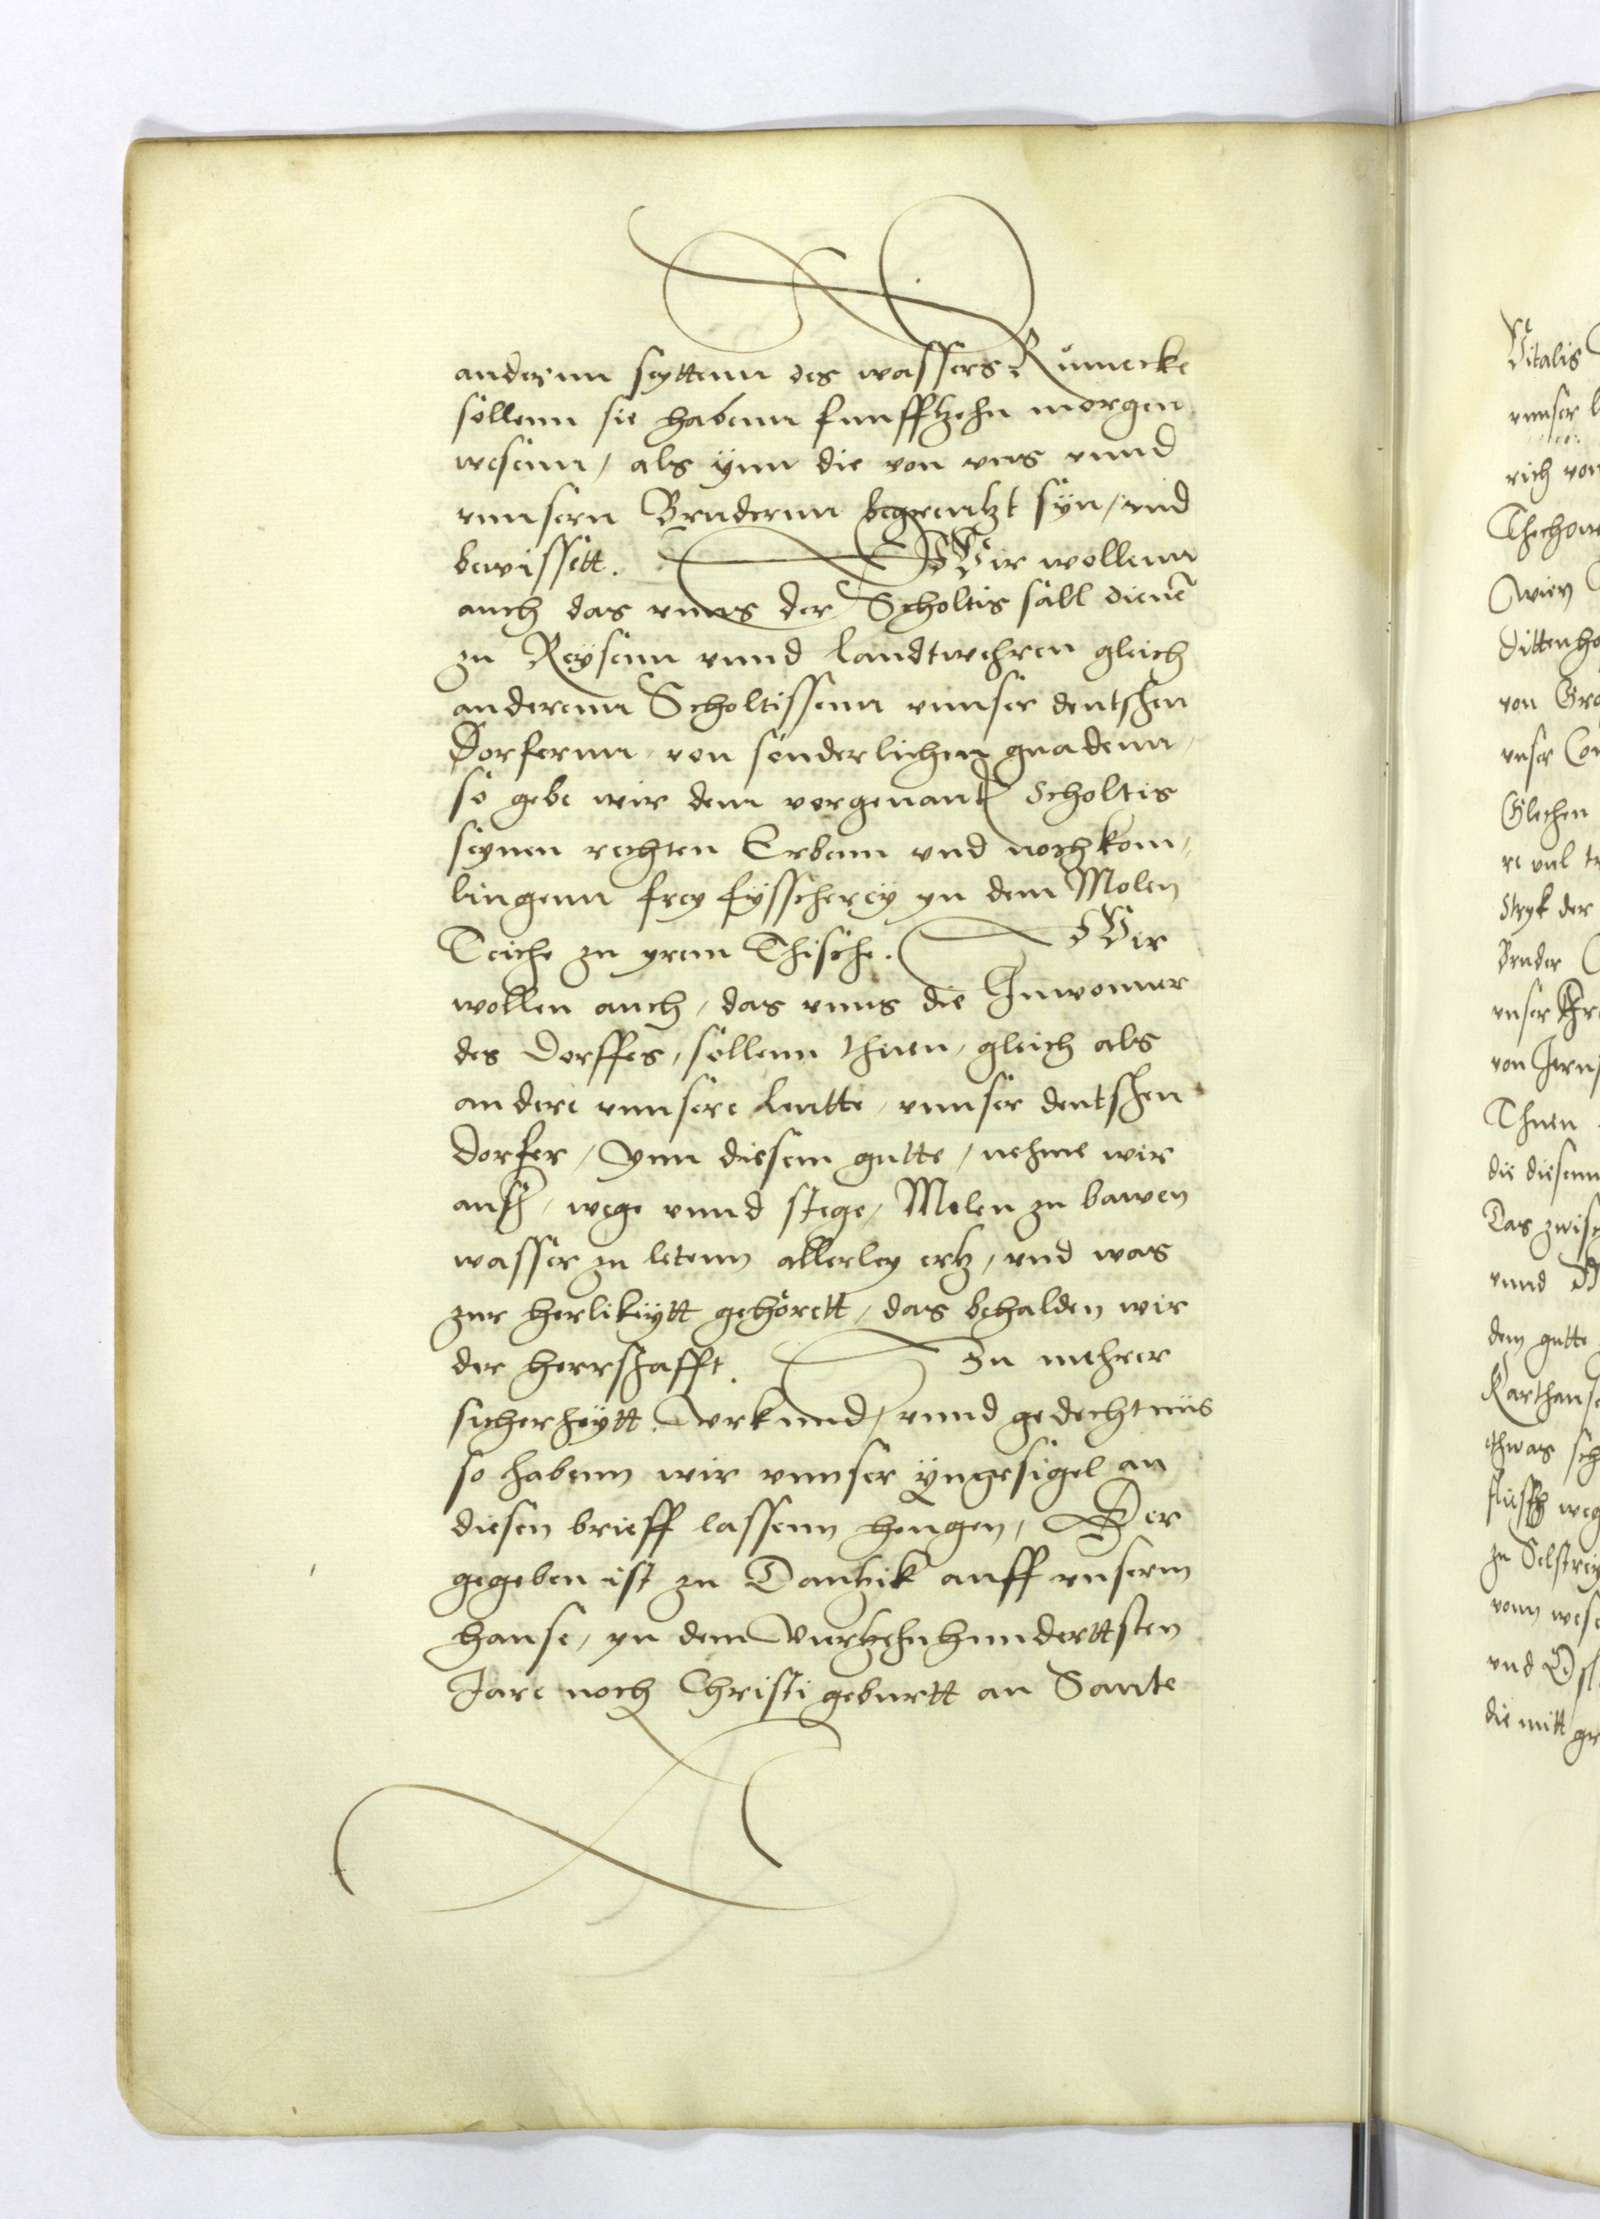 andernn seyttenn des wassers Rumecke
sollenn sie habenn funfftzehn morgen
wesenn, als ÿnn die von vns vnnd
vnnsern Brudernn begrentzt sÿn, vnd
bewissett. Wir wollenn
auch das vnns der Scholtis sall dienē
zu Reysenn vnnd landtwehren gleich
anderenn Scholtissenn vnnser deutschen
Dorfernn, von sonderlichen gnadenn,
so gebe wir dem vorgenantē Scholtis
seynen rechten Erbenn vnd nochkom,
lingenn frey fysscherey yn dem Molen
Teiche zu yrem Thische. Wir
wollen auch, das vnns die Inwonner
des Dorffes, sollenn thuen, gleich als
andere vnnsere leutte, vnnser deutschen
dorfer, Ynn diesem gutte, nehme wir
ausz, wege vnnd stege, Molen zu bawen
wasser zu letenn allerley ertz, vnd was
zur herlikÿtt gehörett, das behalden wir
der herrschafft. Zu mehrer
sicherheÿtt Vrkund, vnnd gedechtnüs
so habenn wir vnnser ÿngesigel an
diesen brieff lassenn hengen, Der
gegeben ist zu Dantzik auff vnserm
hause, yn dem Vierzehnhunderttsten
Jare noch Christi geburtt an Sante
Vitalis
vnnser
rich von
Thechow
dittenho
von Gro
vnser Con
Glechen
re vnl tr
Stryk der
Bruder
vnser
von
Thuen
die diesenn
Das zwisc
vnnd
dem gutte
Karthause
ethwas sch
weg
zu
vonn wese
vnd
die mitt gr